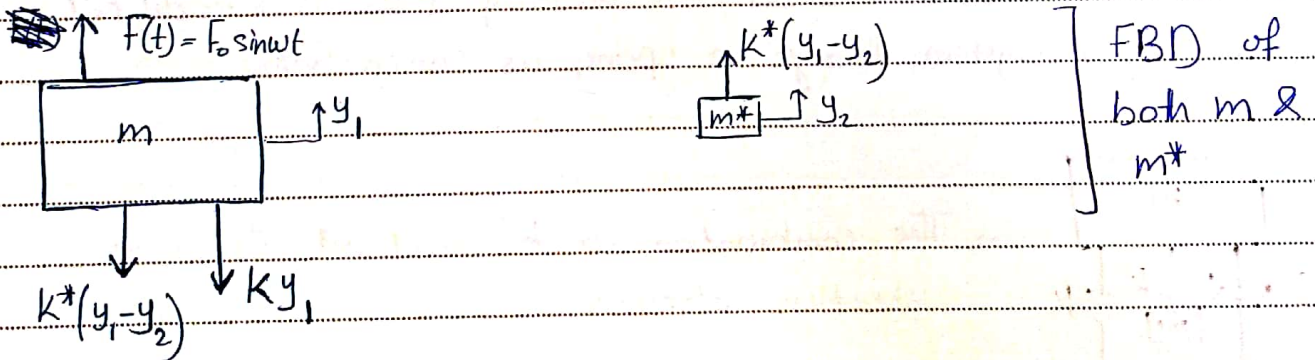 F(t) = F₀ sinωt
m
y₁
k*(y₁-y₂)
ky₁
k*(y₁-y₂)
m*
y₂
FBD of
both m &
m*